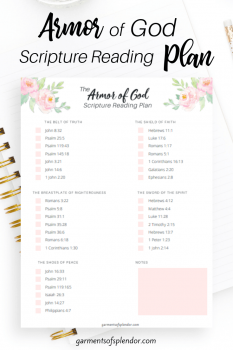 Armor of God
Scripture Reading Plan
The Armor of God
Scripture Reading Plan
THE BELT OF TRUTH
John 8:32
Psalm 25:5
Psalm 119:60
Psalm 145:18
John 4:21
John 14:6
1 John 3:18
THE BREASTPLATE OF RIGHTEOUSNESS
Romans 3:22
Psalm 5:8
Psalm 37:1
Psalm 35:28
Psalm 36:6
Romans 5:18
1 Corinthians 1:30
THE SHOES OF PEACE
John 16:33
Psalm 29:11
Psalm 119:165
Isaiah 26:3
John 14:27
Philippians 4:7
THE SHIELD OF FAITH
Hebrews 11:1
Luke 17:6
Romans 1:17
Romans 5:1
1 Corinthians 16:13
Galatians 2:20
Ephesians 2:8
THE SWORD OF THE SPIRIT
Hebrews 4:12
Matthew 4:4
Luke 11:28
2 Timothy 3:15
Hebrews 13:7
1 Peter 1:23
1 John 2:14
NOTES
garmentsofsplendor.com
garmentsofsplendor.com